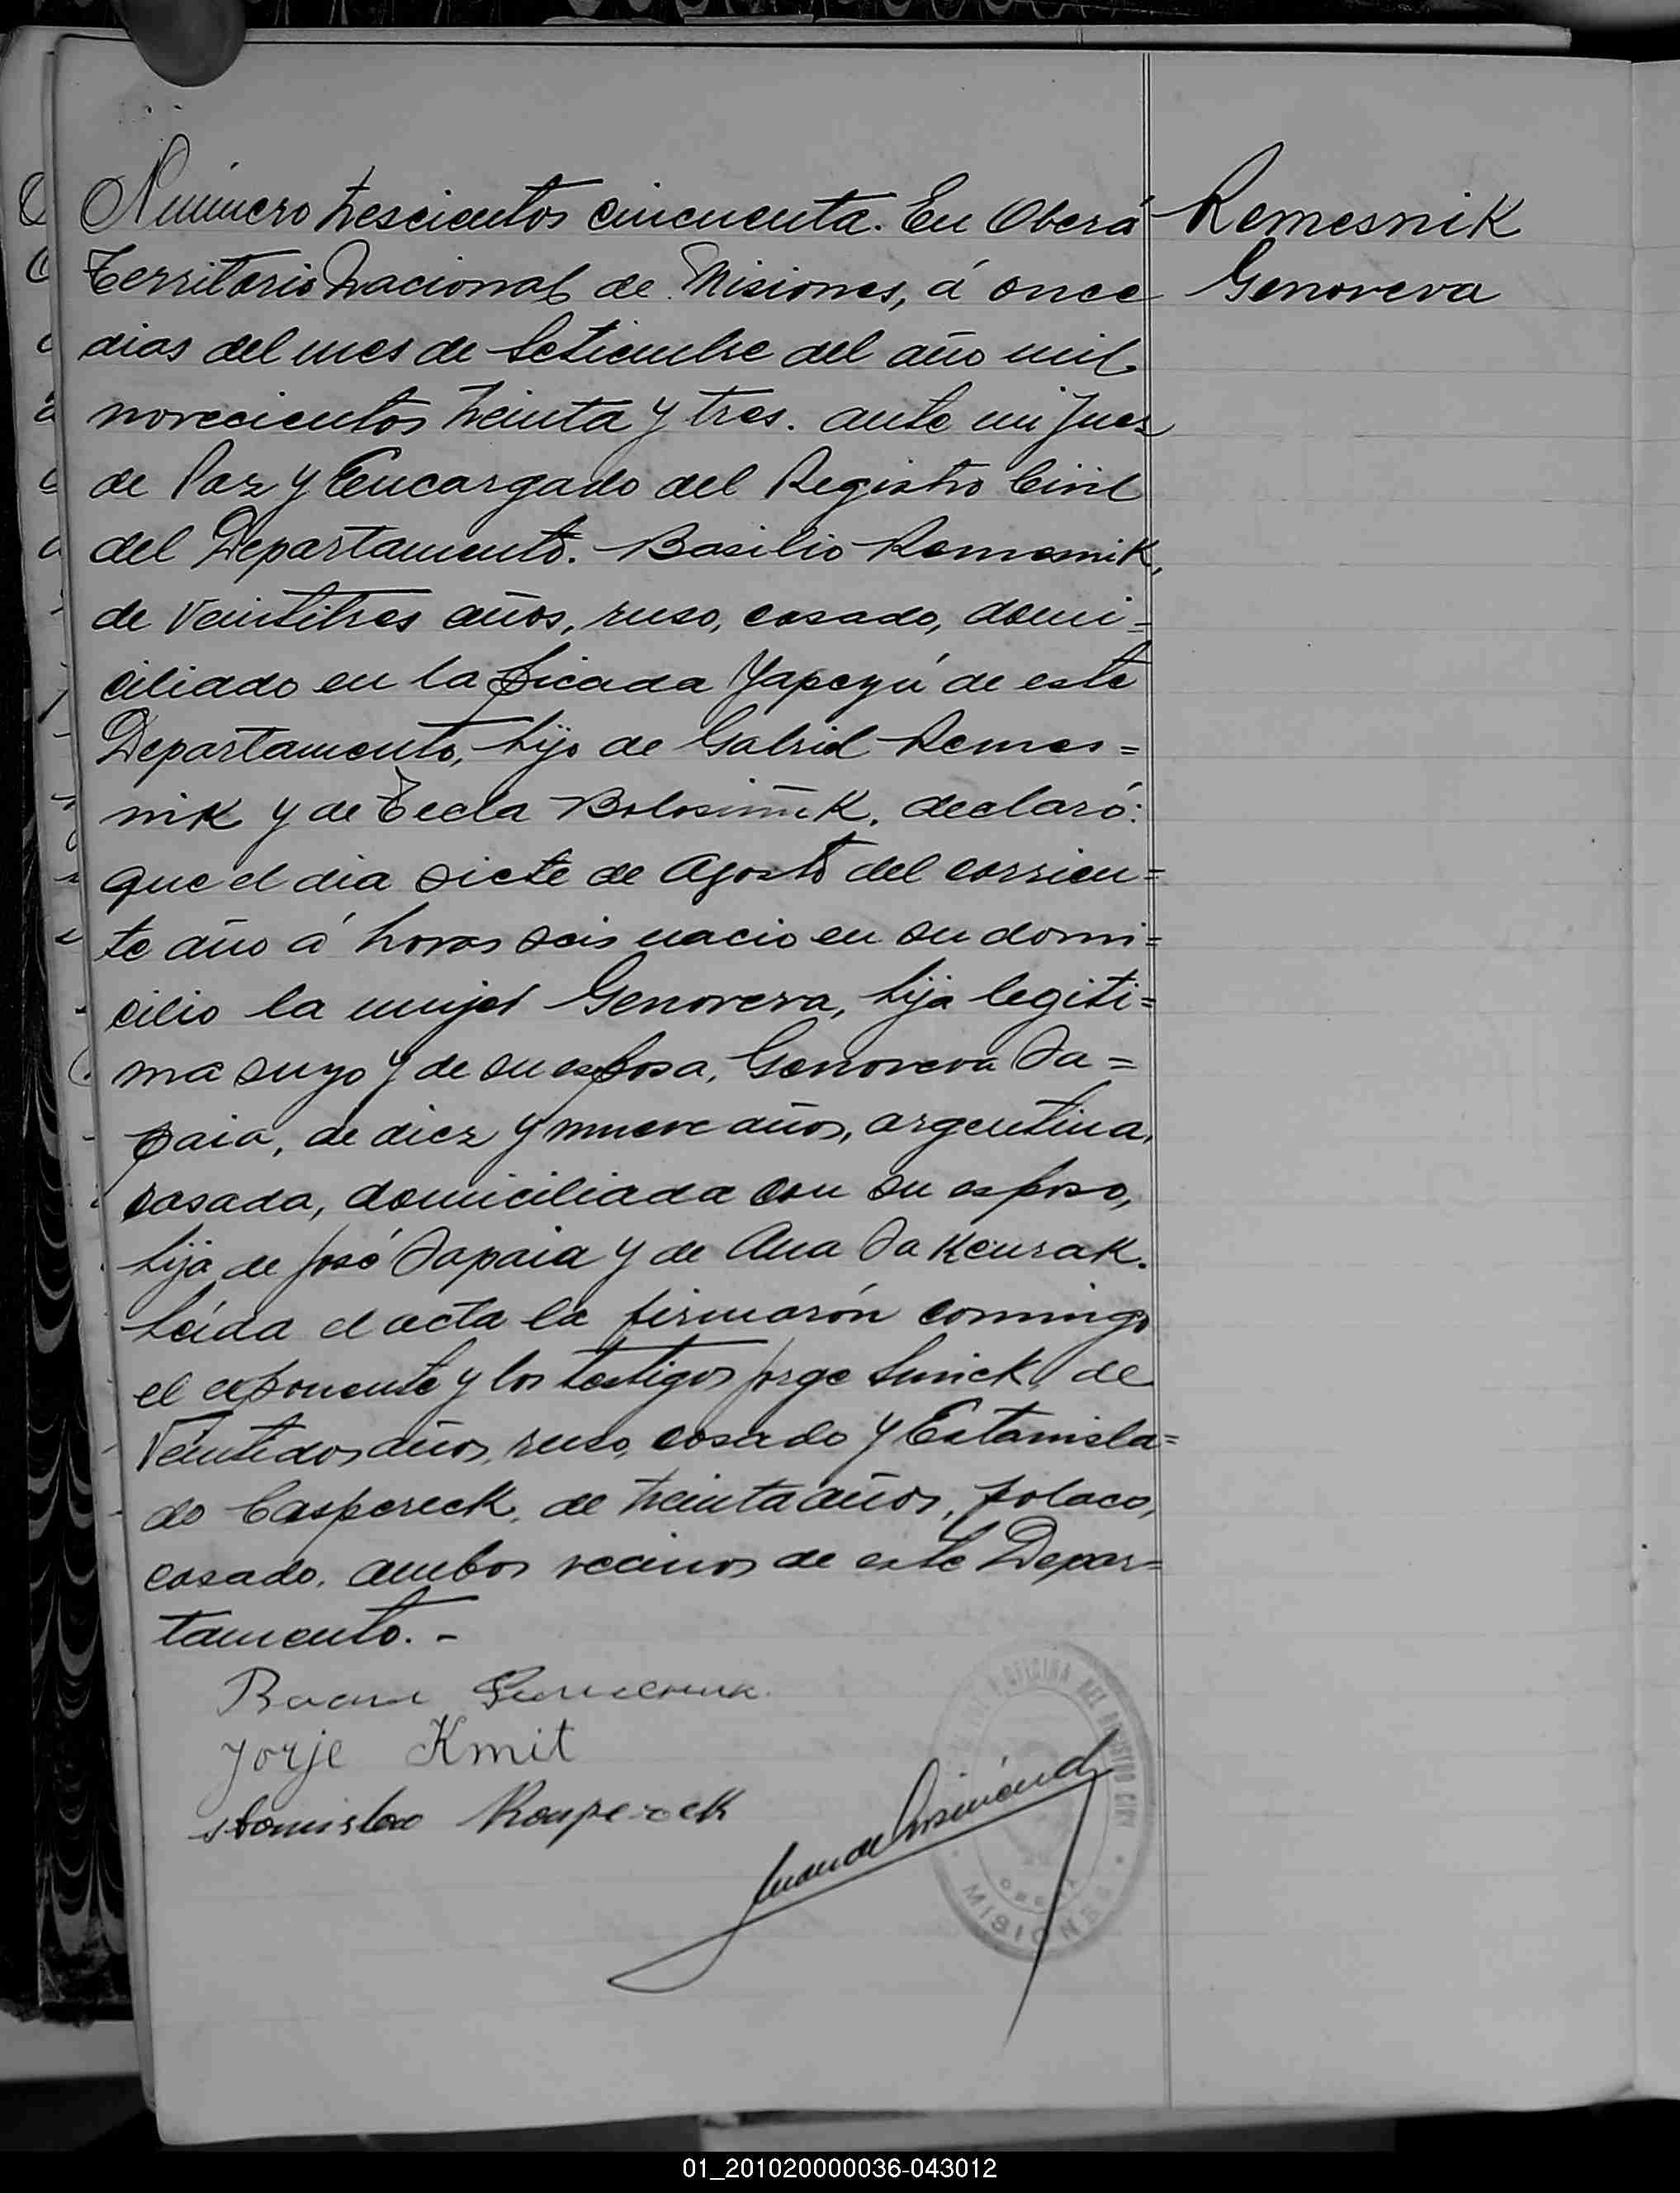 Número trescientos cincuenta. En Oberá
Territorio Nacional de Misiones, á once
dias del mes de Setiembre del año mil
novecientos treinta y tres. ante mi Juez
de Paz y Encargado del Registro Civil
del Departamento. Basilio Remesnik,
de veintitres años, ruso, casado, domi-
ciliado en la picada Yapeyú de este
Departamento, hijo de Gabriel Remes=
nik y de Tecla declaró:
que el dia siete de Agosto del corrien=
te año á horas seis nacio en su domi=
cilio la mujer Genoveva, hija legiti=
ma suya y de su esposa, Genoveva Sa=
paia, de diez y nueve años, argentina,
casada, domiciliada con su esposo,
hija de José Sapaia y de Ana
Leida el acta la firmarón conmigo
el exponente y los testigos Jorge de
Veintidos años, ruso, casado y Estanisla=
do Caspereck, de treinta años, polaco,
casado. ambos vecinos de este Depar=
tamento.-
Jorje Kmit
Kasperek
Remesnik
Genoveva
OFICINA DEL REGISTRO CIVIL
OBERA
MISIONES
01_201020000036-043012